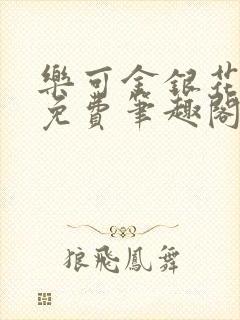 樂可金銀花
免費筆趣閣
狼飛鳳舞